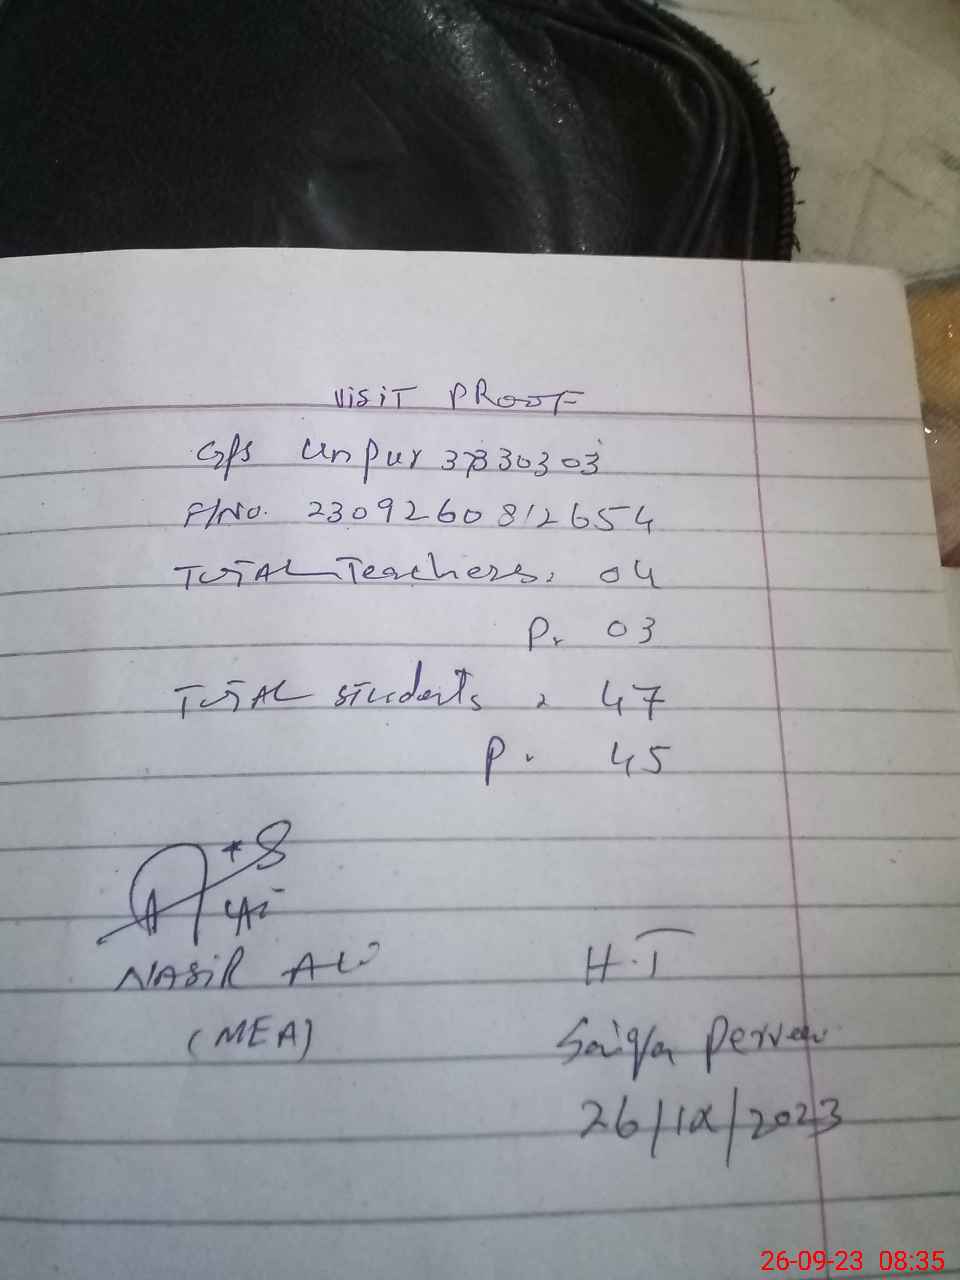 VISIT PROOF
GPS Unpur 37330303
F/No. 2309260812654
TOTAL Teachers: 04
P. 03
TOTAL Students : 47
P. 45
NASIR ALI
(MEA)
H.T
Saiqa Perveen
26/IX/2023
26-09-23 08:35